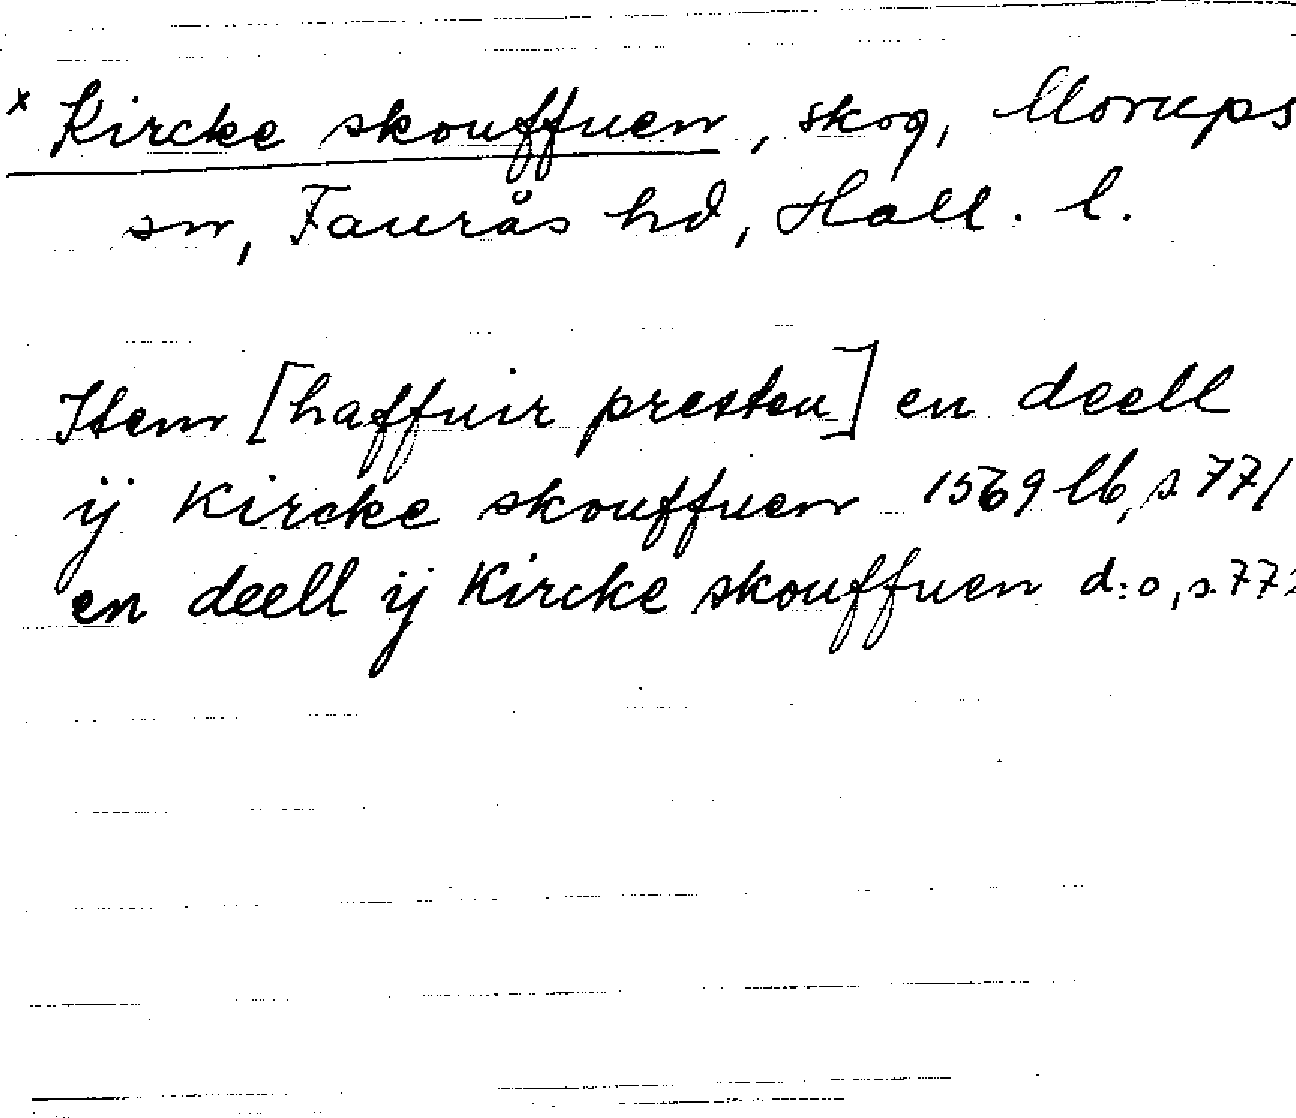 x Kircke skouffuen, skog, Morups
sn, Faurås hd, Hall. l.
Item [haffuir presten] en deell
ij Kircke skouffuen 1569 lb, s. 771
en deell ij Kircke skouffuen d:o, s. 772